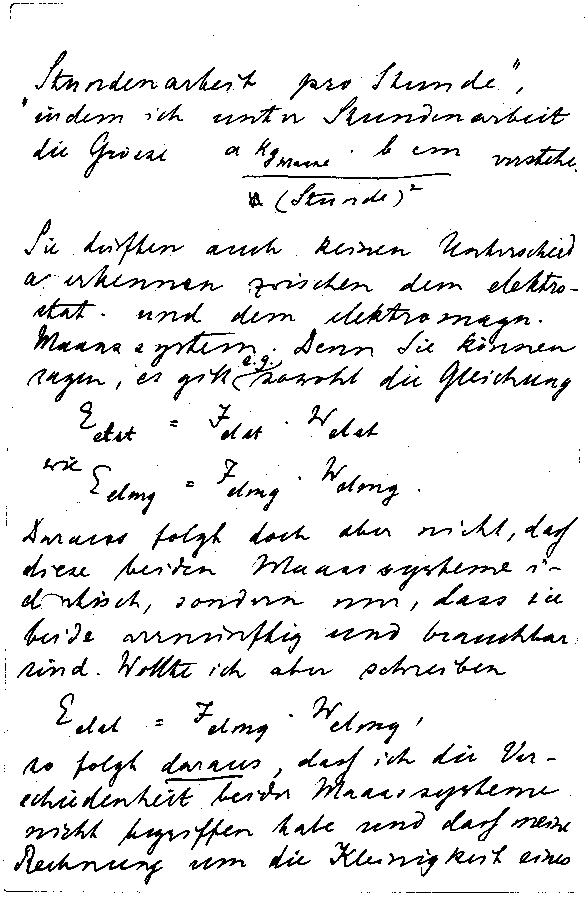 "Stundenarbeit pro Stunde",
indem ich unter Stundenarbeit
die Groesse a kg Masse · b cm verstehe.
(Stunde)²
Sie dürften auch keinen Unterschied
anerkennen zwischen dem elektro-
stat. und dem elektromagn.
Maassystem. Denn Sie können
sagen, es gilt e.g. sowohl die Gleichung
E elst = J elst · W elst
wie E elmg = J elmg · W elmg.
Daraus folgt doch aber nicht, daß
diese beiden Maassysteme i-
dentisch, sondern nur, dass sie
beide vernünftig und brauchbar
sind. Wollte ich aber schreiben
E elst = J elmg · W elmg,
so folgt daraus, daß ich die Ver-
schiedenheit beider Maassysteme
nicht begriffen habe und daß meine
Rechnung um die Kleinigkeit eines